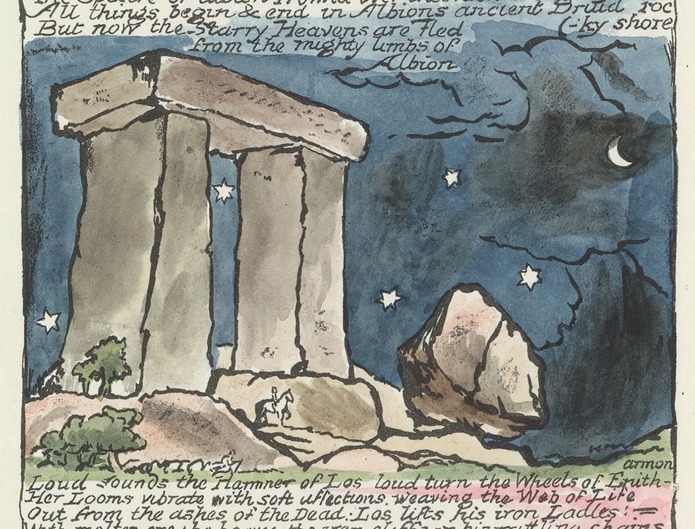 All things begin & end in Albions ancient Druid roc
But now the Starry Heavens are fled (-ky shore
from the mighty limbs of
Albion
armon
Loud sounds the Hammer of Los loud turn the Wheels of Enith-
Her Looms vibrate with soft affections, weaving the Web of Life
Out from the ashes of the Dead: Los lifts his iron Ladles:=
With molten ore: he heaves the iron cliffs in his